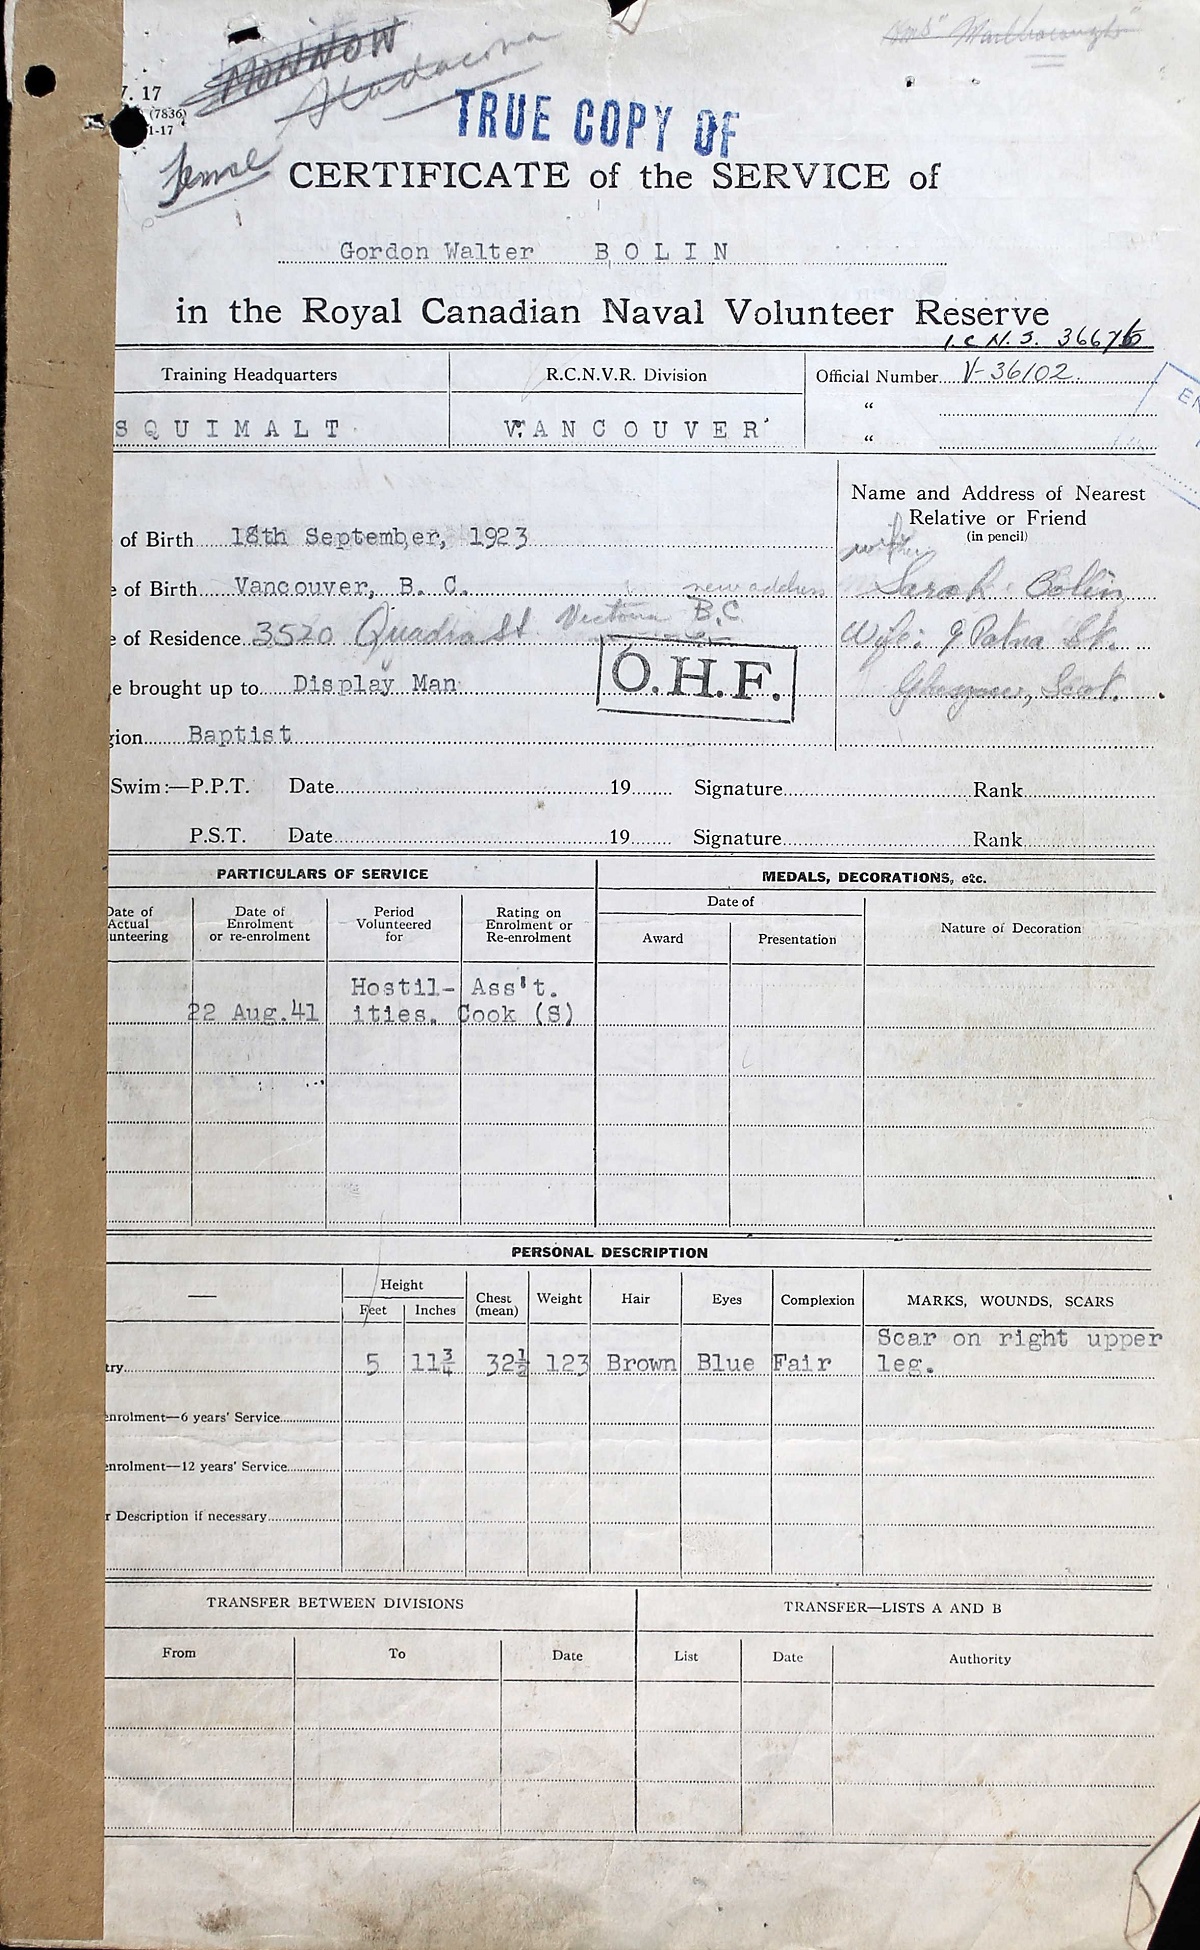 MONNOW
Stadacona
V. 17
(7836)
1-17
TRUE COPY OF
CERTIFICATE of the SERVICE of
Gordon Walter BOLIN
in the Royal Canadian Naval Volunteer Reserve
Training Headquarters
R.C.N.V.R. Division
Official Number V-36102
"
"
SQUIMALT
VANCOUVER
Name and Address of Nearest
Relative or Friend
(in pencil)
of Birth 18th September, 1923
wife
e of Birth Vancouver, B. C. new address
Sarah Bolin
e of Residence 3520 Quadra St Victoria B.C.
Wife: 9 Patna St.
e brought up to Display Man
O.H.F.
Glasgow, Scot.
gion Baptist
Swim:—P.P.T. Date 19 Signature Rank
P.S.T. Date 19 Signature Rank
PARTICULARS OF SERVICE
MEDALS, DECORATIONS, etc.
Date of
Actual
unteering
Date of
Enrolment
or re-enrolment
Period
Volunteered
for
Rating on
Enrolment or
Re-enrolment
Date of
Award
Presentation
Nature of Decoration
22 Aug.41
Hostil-
ities.
Ass't.
Cook (S)
PERSONAL DESCRIPTION
—
Height
Feet
Inches
Chest
(mean)
Weight
Hair
Eyes
Complexion
MARKS, WOUNDS, SCARS
try 5 11¾ 32½ 123 Brown Blue Fair
Scar on right upper
leg.
enrolment—6 years' Service
enrolment—12 years' Service
r Description if necessary
TRANSFER BETWEEN DIVISIONS
TRANSFER—LISTS A AND B
From
To
Date
List
Date
Authority